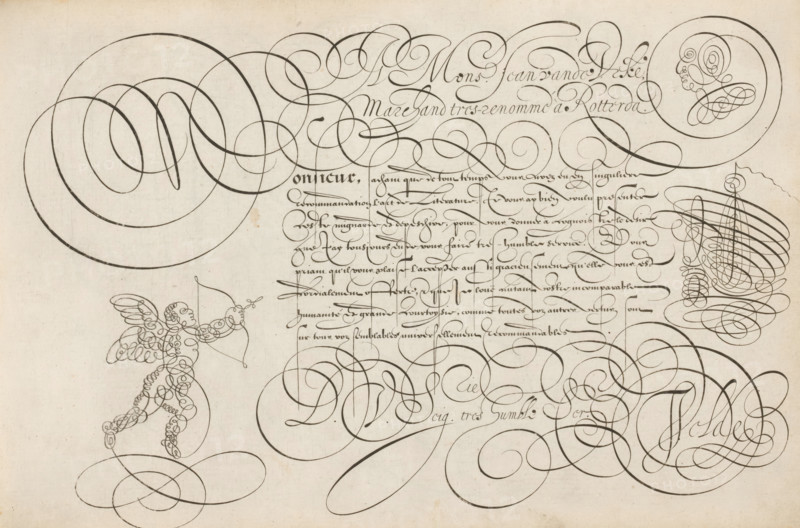 A Mons.r Jean vande
Marchand tres-renommé à Rotterda
Monsieur, sachant que de tout temps vous avez eu en singuliere
recommandation l'art de Literature, Je vous ay bien voulu presenter
ceste mignarde pour vous donner a cognoistre le desir
que j'ay tousjours eu de vous faire tres-humbles service. Vous
priant qu'il vous plaise l'accepter aussi gracieusement qu'elle vous est
cordialement offerte, & que Je loue autant vostre incomparable
humanité & grande courtoysie, comme toutes voz autres vertus sont
sur tous voz semblables universellement recommandables
D. V. Seig.rie tres humble Serv.r Velde